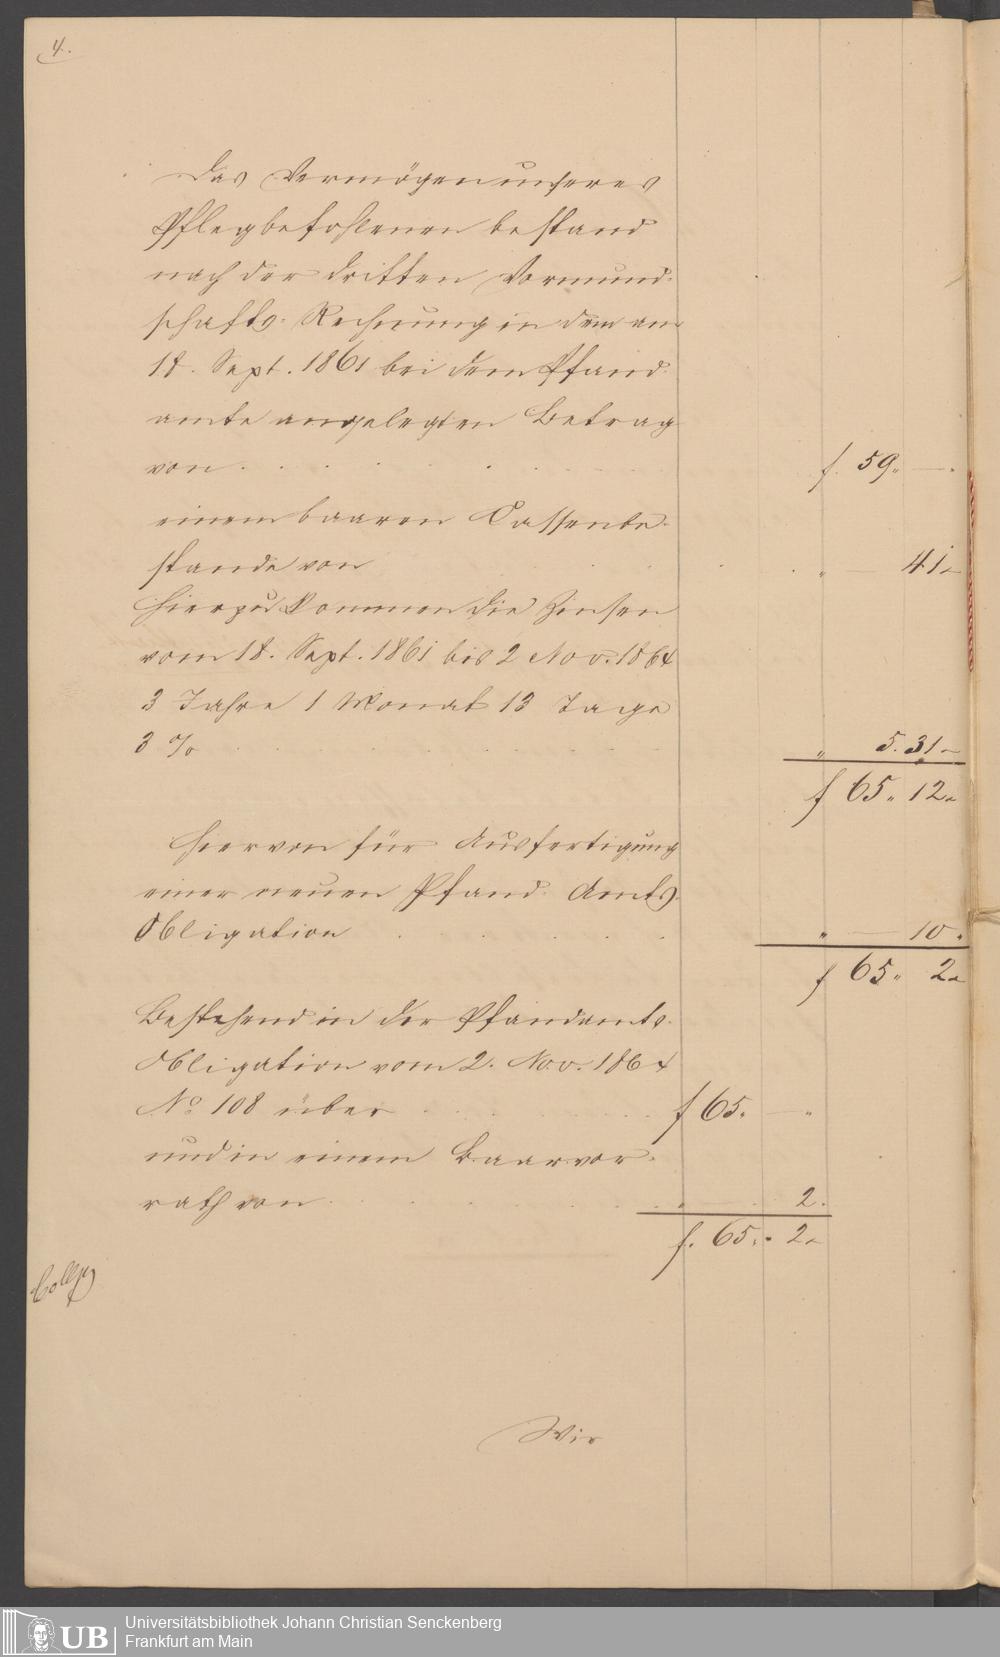 4.
Das Vermögen unseres
Pflegbefohlenen bestand
nach der dritten Vormund-
schafts-Rechnung in dem am
18. Sept. 1861 bei dem Pfand-
amte angelegten Betrag
von . . . . . . f. 59. — .
einem baaren Cassenbe-
stande von . . . . " — 41 —
Hierzu kommen die Zinsen
vom 18. Sept. 1861 bis 2 Nov. 1864
3 Jahre 1 Monat 13 Tage
3 % . . . . . . " 5. 31 —
f 65 " 12 —
Hiervon für Ausfertigung
einer neuen Pfand-Amts-
Obligation . . . . . " — 10 .
f 65 " 2 —
Bestehend in der Pfandamts-
Obligation vom 2. Nov. 1864
No 108 über . . . . . f 65. — "
und in einem Baarvor-
rath von . . . . . " — 2 .
f. 65. " 2 —
Wir
UB
Universitätsbibliothek Johann Christian Senckenberg
Frankfurt am Main